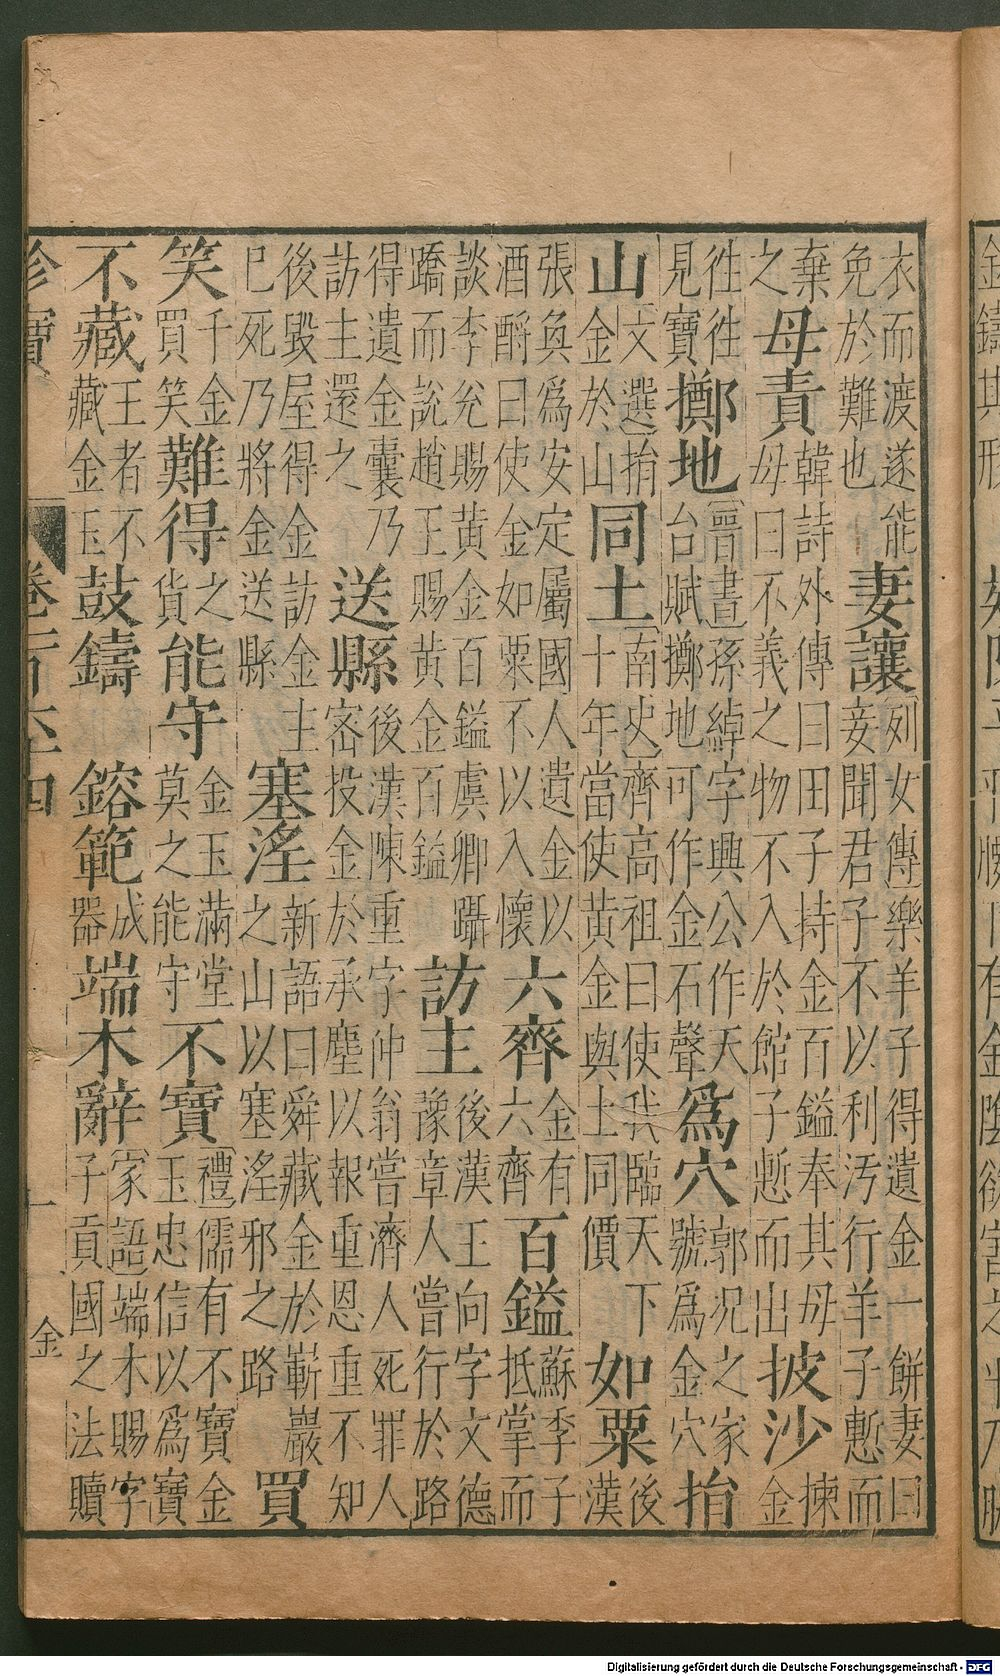 衣而渡遂能免於難也妻讓列女傳樂羊子得遺金一餅妻曰妾聞君子不以利汚行羊子慙而
棄之母責韓詩外傳曰田子持金百鎰奉其母母曰不義之物不入於館子慙而出披沙揀金
往往見寶擲地晉書孫綽字興公作天台賦擲地可作金石聲爲穴郭况之家號爲金穴捐
山文選捐金於山同土南史齊高祖曰使我臨天下十年當使黃金與土同價如粟後漢
張奐爲安定屬國人遺金以酒酹曰使金如粟不以入懷六齊金有六齊百鎰蘇季子抵掌而
談李兊賜黃金百鎰虞卿躡蹻而說趙王賜黃金百鎰訪主後漢王向字文德豫章人嘗行於路
得遺金囊乃訪主還之送縣後漢陳重字仲翁嘗濟人死罪人密投金於承塵以報重恩重不知
後毀屋得金訪金主已死乃將金送縣塞淫新語曰舜藏金於嶄巖之山以塞淫邪之路買
笑千金買笑難得之貨能守金玉滿堂莫之能守不寶禮儒有不寶金玉忠信以爲寶
不藏王者不藏金玉鼓鑄鎔範成器端木辭家語端木賜字子貢國之法贖
金
Digitalisierung gefördert durch die Deutsche Forschungsgemeinschaft - DFG